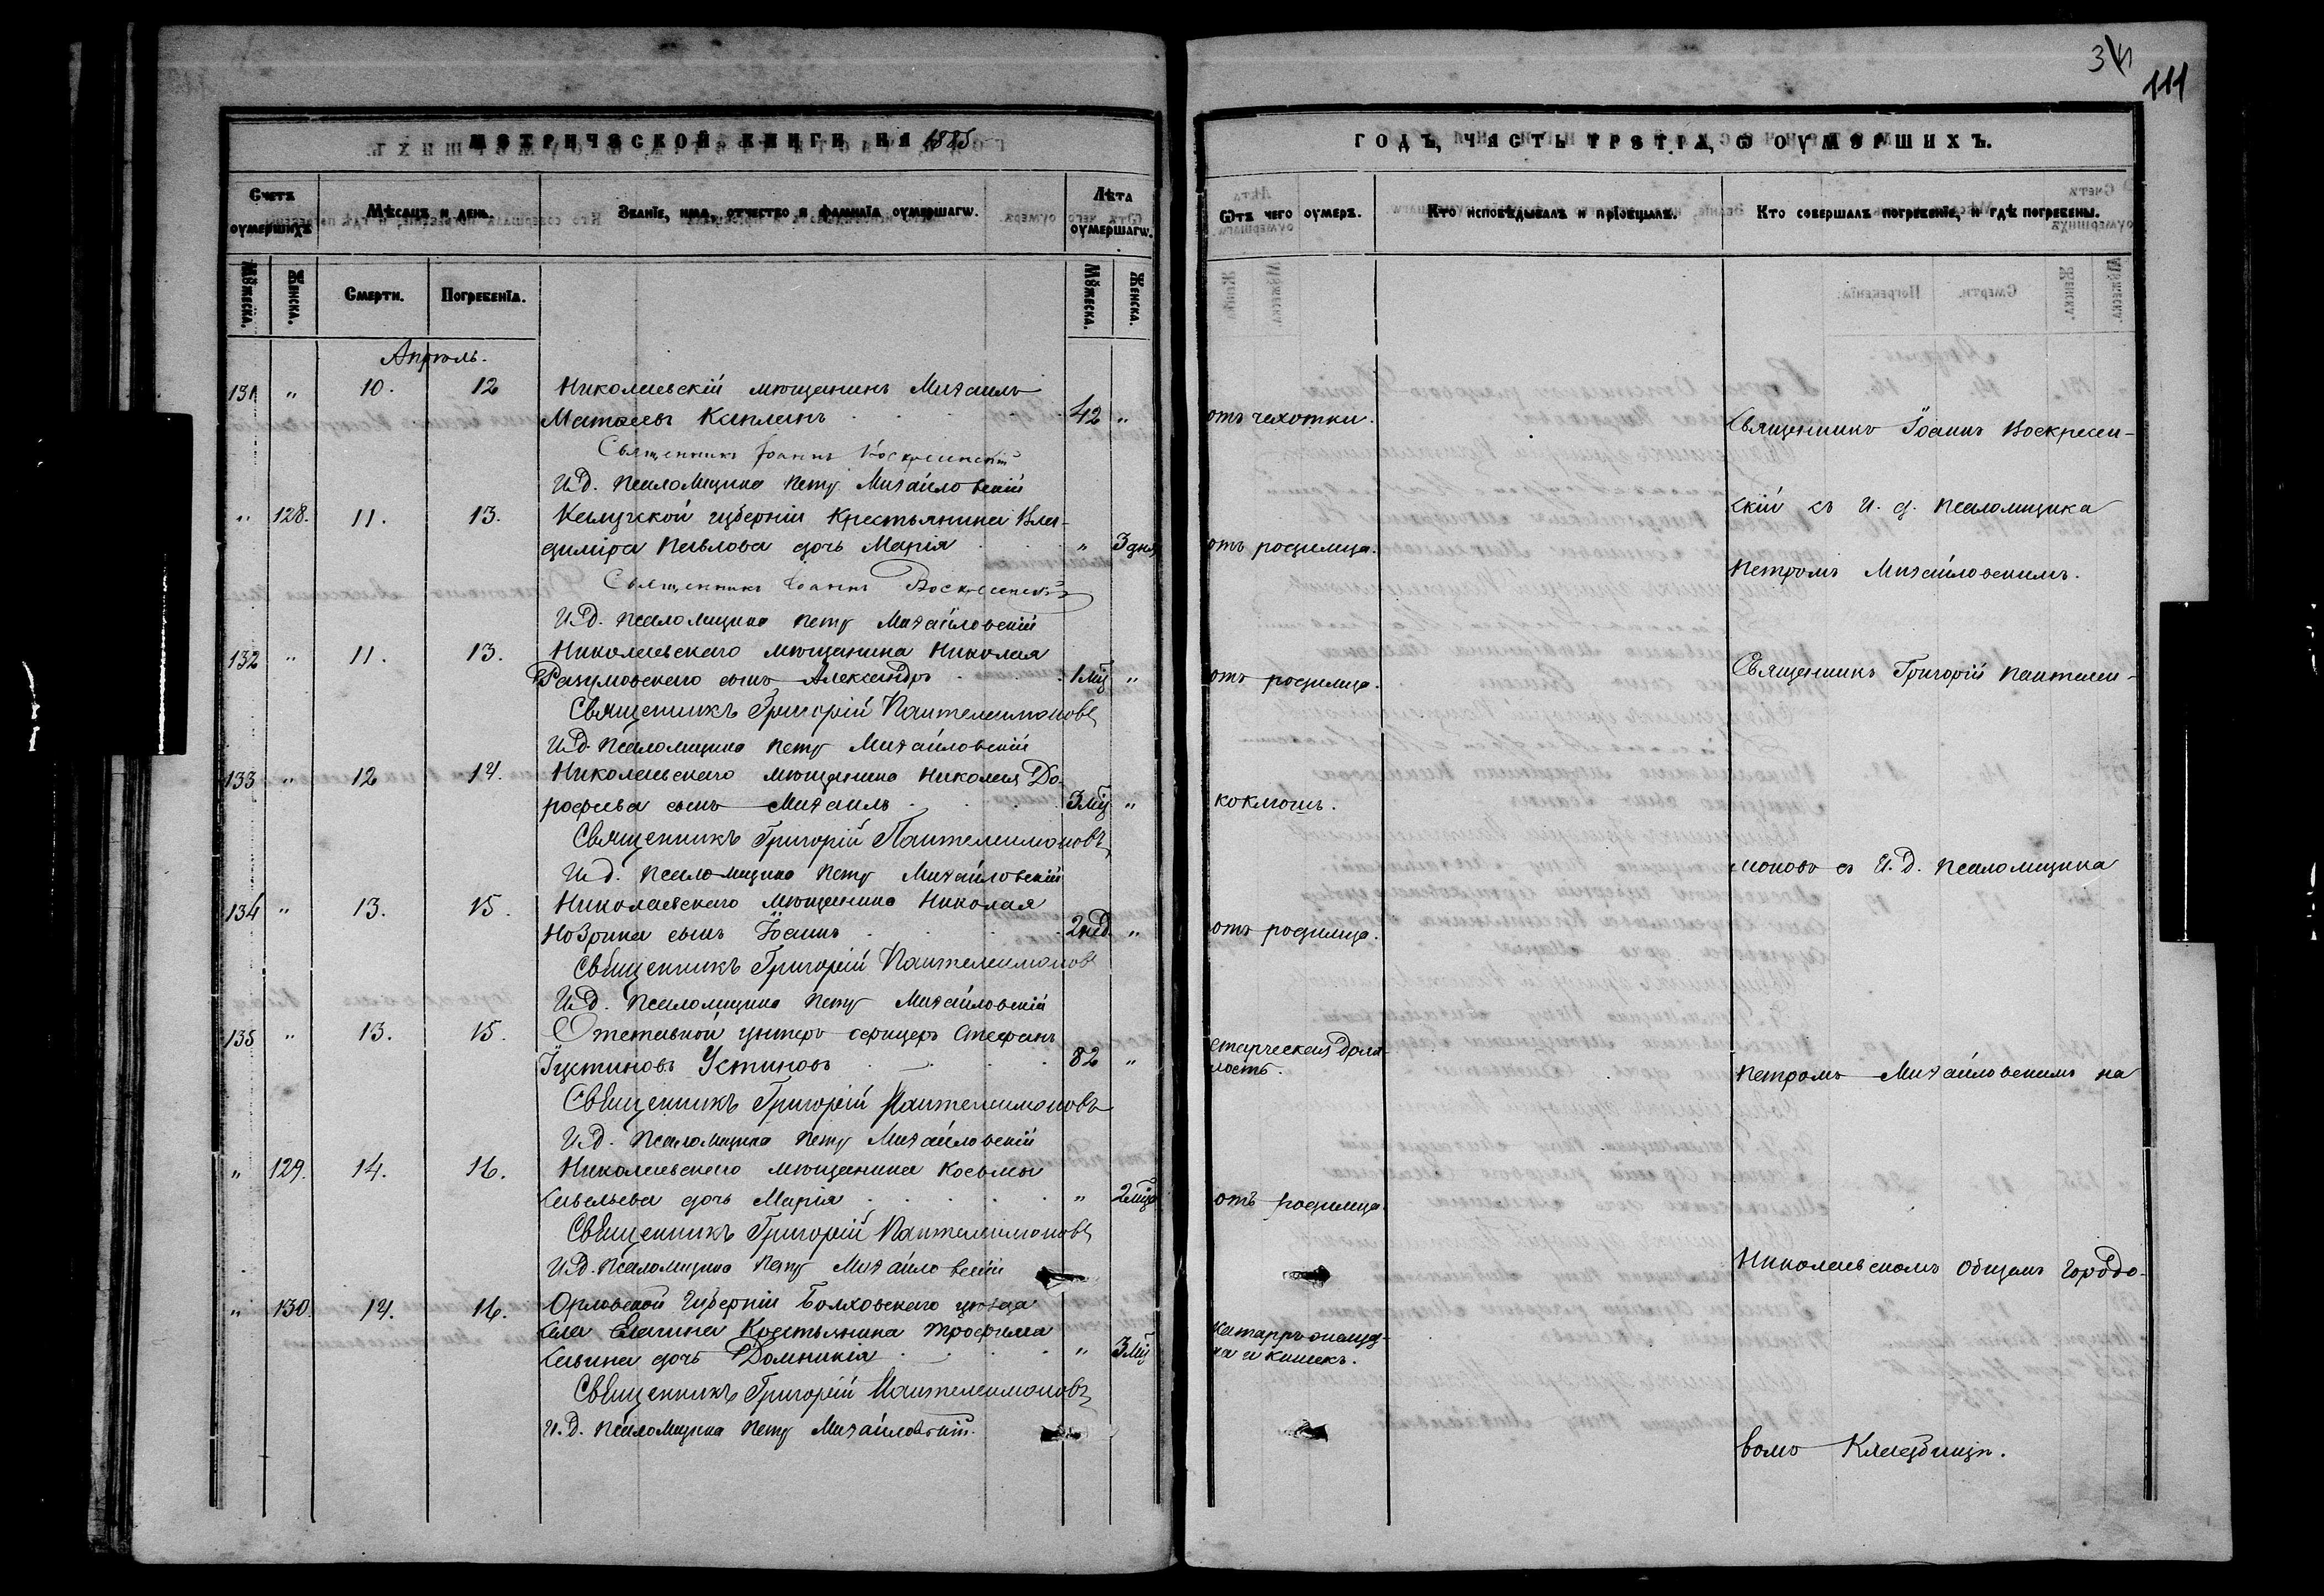 341
111
МЕТРИЧЕСКОЙ КНИГИ НА 1885
Счетъ оумершихъ
Мѣсяцъ и день.
Званїе, имя, отчество и фамилїя оумершагѡ.
Лѣта оумершагѡ.
Мꙋжеска.
Женска.
Смерти.
Погребенїя.
Мꙋжеска.
Женска.
Апрѣль.
131 " 10. 12 Николаевскій мѣщанинъ Михаилъ
Матѳеевъ Каплинъ 42 "
Священникъ Іоаннъ Воскресенскій
И.д. псаломщика Петръ Михайловскій
" 128. 11. 13. Калужской губерніи крестьянина Вла-
диміра Павлова дочь Марія " 3 дня
Священникъ Іоаннъ Воскресенскій
И.д. псаломщика Петръ Михайловскій
132 " 11. 13. Николаевскаго мѣщанина Николая
Разумовскаго сынъ Александръ 1 мѣс "
Священникъ Григорій Пантелеимоновъ
И.д. псаломщика Петръ Михайловскій
133 " 12 14. Николаевскаго мѣщанина Николая До-
рофеева сынъ Михаилъ 3 мѣс "
Священникъ Григорій Пантелеимоновъ
И.д. псаломщика Петръ Михайловскій
134 " 13. 15. Николаевскаго мѣщанина Николая
Ноздрина сынъ Іоаннъ 2 нед "
Священникъ Григорій Пантелеимоновъ
И.д. псаломщика Петръ Михайловскій
135 " 13. 15. Отставной унтеръ офицеръ Стефанъ
Іустиновъ Устиновъ 82 "
Священникъ Григорій Пантелеимоновъ
И.д. псаломщика Петръ Михайловскій
" 129. 14. 16. Николаевскаго мѣщанина Косьмы
Савельева дочь Марія " 2 мѣс
Священникъ Григорій Пантелеимоновъ
И.д. псаломщика Петръ Михайловскій
" 130. 14. 16. Орловской губерніи Болховскаго уѣзда
села крестьянина Трофима
Савина дочь Домникія " 3 мѣс
Священникъ Григорій Пантелеимоновъ
И.д. псаломщика Петръ Михайловскій.
ГОДЪ, ЧАСТЬ ТРЕТЇѦ, Ѡ ОУМЕРШИХЪ.
Ѿтъ чего оумеръ.
Кто исповѣдывалъ и прїобщалъ.
Кто совершалъ погребенїе, и гдѣ погребены.
отъ чахотки.
отъ родимца.
отъ родимца.
коклюшъ.
отъ родимца.
старческая дрях-
лость.
отъ родимца.
катарръ желуд-
ка и кишекъ.
Священникъ Іоаннъ Воскресен-
скій съ и. д. псаломщика
Петромъ Михайловскимъ.
Священникъ Григорій Пантелеи-
моновъ съ И. Д. псаломщика
Петромъ Михайловскимъ на
Николаевскомъ общемъ городо-
вомъ кладбищѣ.